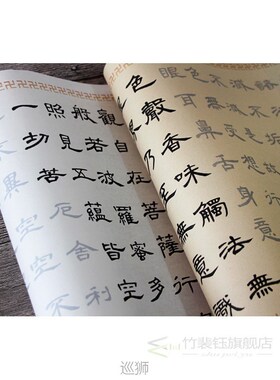 觀自在菩薩行
般若波羅蜜多
照見五蘊皆空
一切苦厄舍利
異空空不
眼耳鼻舌身意
色聲香味觸法無
乃至無意識
竹裝鈺旗舰店
巡狮